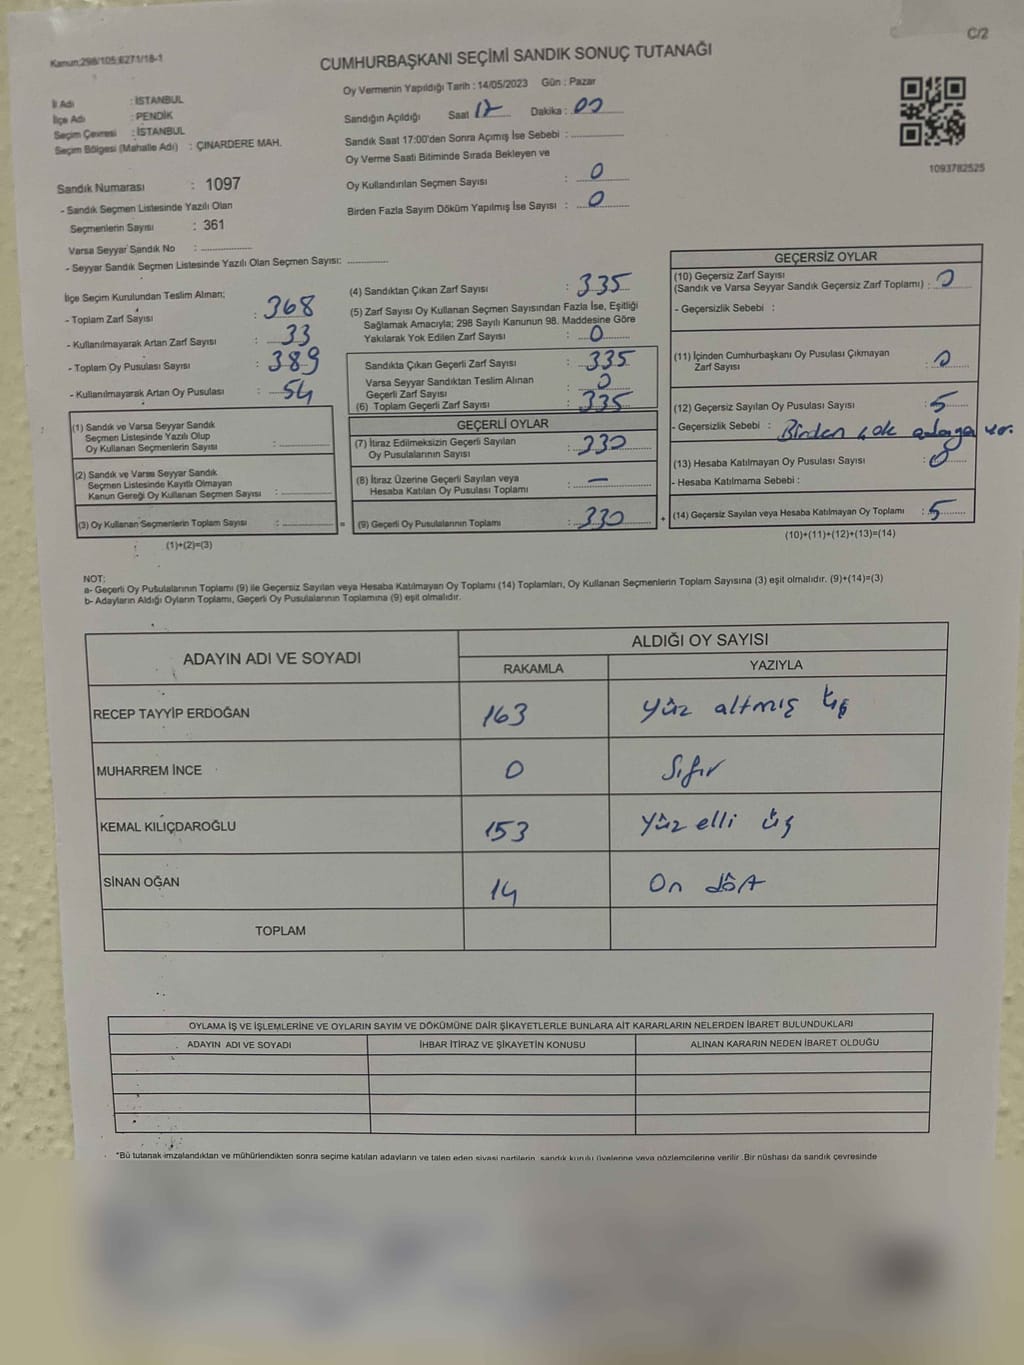 C/2
Kanun;298/105;6271/18-1
CUMHURBAŞKANI SEÇİMİ SANDIK SONUÇ TUTANAĞI
Oy Vermenin Yapıldığı Tarih : 14/05/2023 Gün : Pazar
İl Adı : İSTANBUL
İlçe Adı : PENDİK
Seçim Çevresi : İSTANBUL
Seçim Bölgesi (Mahalle Adı) : ÇINARDERE MAH.
Sandığın Açıldığı Saat 17 Dakika : 00
Sandık Saat 17:00'den Sonra Açımış İse Sebebi :
Oy Verme Saati Bitiminde Sırada Bekleyen ve
Oy Kullandırılan Seçmen Sayısı : 0
Birden Fazla Sayım Döküm Yapılmış İse Sayısı : 0
1093782525
Sandık Numarası : 1097
- Sandık Seçmen Listesinde Yazılı Olan
Seçmenlerin Sayısı : 361
Varsa Seyyar Sandık No :
- Seyyar Sandık Seçmen Listesinde Yazılı Olan Seçmen Sayısı:
İlçe Seçim Kurulundan Teslim Alınan;
- Toplam Zarf Sayısı : 368
- Kullanılmayarak Artan Zarf Sayısı : 33
- Toplam Oy Pusulası Sayısı : 389
- Kullanılmayarak Artan Oy Pusulası : 54
(1) Sandık ve Varsa Seyyar Sandık
Seçmen Listesinde Yazılı Olup
Oy Kullanan Seçmenlerin Sayısı :
(2) Sandık ve Varsa Seyyar Sandık
Seçmen Listesinde Kayıtlı Olmayan
Kanun Gereği Oy Kullanan Seçmen Sayısı :
(3) Oy Kullanan Seçmenlerin Toplam Sayısı : =
(1)+(2)=(3)
(4) Sandıktan Çıkan Zarf Sayısı : 335
(5) Zarf Sayısı Oy Kullanan Seçmen Sayısından Fazla İse, Eşitliği
Sağlamak Amacıyla; 298 Sayılı Kanunun 98. Maddesine Göre
Yakılarak Yok Edilen Zarf Sayısı : 0
Sandıkta Çıkan Geçerli Zarf Sayısı : 335
Varsa Seyyar Sandıktan Teslim Alınan
Geçerli Zarf Sayısı : 0
(6) Toplam Geçerli Zarf Sayısı : 335
GEÇERLİ OYLAR
(7) İtiraz Edilmeksizin Geçerli Sayılan
Oy Pusulalarının Sayısı : 330
(8) İtiraz Üzerine Geçerli Sayılan veya
Hesaba Katılan Oy Pusulası Toplamı : —
(9) Geçerli Oy Pusulalarının Toplamı : 330 +
GEÇERSİZ OYLAR
(10) Geçersiz Zarf Sayısı
(Sandık ve Varsa Seyyar Sandık Geçersiz Zarf Toplamı) : 0
- Geçersizlik Sebebi :
(11) İçinden Cumhurbaşkanı Oy Pusulası Çıkmayan
Zarf Sayısı : 0
(12) Geçersiz Sayılan Oy Pusulası Sayısı : 5
- Geçersizlik Sebebi : Birden çok adaya
(13) Hesaba Katılmayan Oy Pusulası Sayısı : 0
- Hesaba Katılmama Sebebi :
(14) Geçersiz Sayılan veya Hesaba Katılmayan Oy Toplamı : 5
(10)+(11)+(12)+(13)=(14)
NOT:
a- Geçerli Oy Pusulalarının Toplamı (9) ile Geçersiz Sayılan veya Hesaba Katılmayan Oy Toplamı (14) Toplamları, Oy Kullanan Seçmenlerin Toplam Sayısına (3) eşit olmalıdır. (9)+(14)=(3)
b- Adayların Aldığı Oyların Toplamı, Geçerli Oy Pusulalarının Toplamına (9) eşit olmalıdır.
ADAYIN ADI VE SOYADI ALDIĞI OY SAYISI
RAKAMLA YAZIYLA
RECEP TAYYİP ERDOĞAN 163 Yüz altmış üç
MUHARREM İNCE 0 Sıfır
KEMAL KILIÇDAROĞLU 153 Yüz elli üç
SİNAN OĞAN 14 On dört
TOPLAM
OYLAMA İŞ VE İŞLEMLERİNE VE OYLARIN SAYIM VE DÖKÜMÜNE DAİR ŞİKAYETLERLE BUNLARA AİT KARARLARIN NELERDEN İBARET BULUNDUKLARI
ADAYIN ADI VE SOYADI İHBAR İTİRAZ VE ŞİKAYETİN KONUSU ALINAN KARARIN NEDEN İBARET OLDUĞU
*Bu tutanak imzalandıktan ve mühürlendikten sonra seçime katılan adayların ve talep eden siyasi partilerin sandık kurulu üyelerine veya gözlemcilerine verilir .Bir nüshası da sandık çevresinde